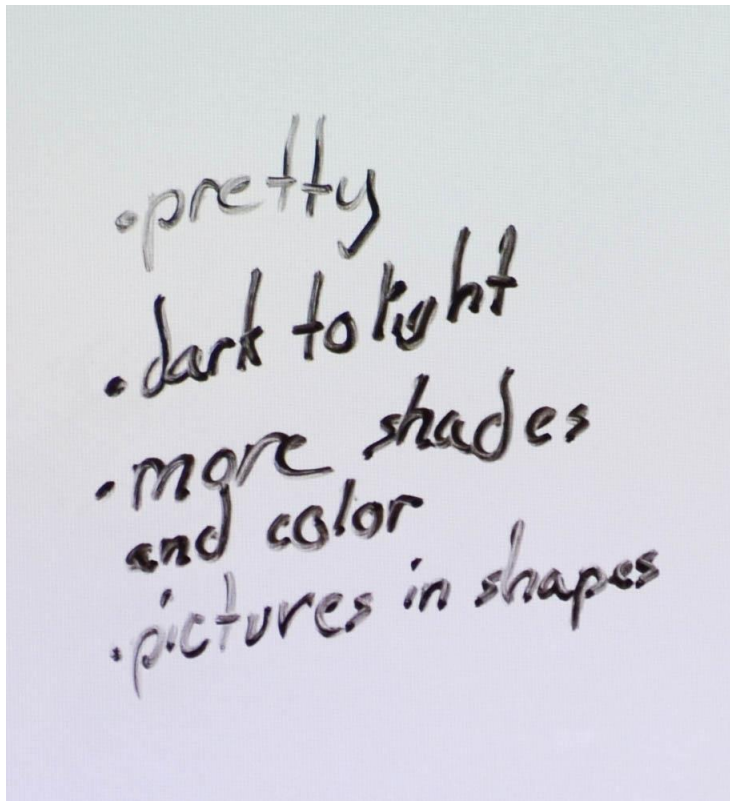 • pretty
• dark to light
• more shades
and color
• pictures in shapes